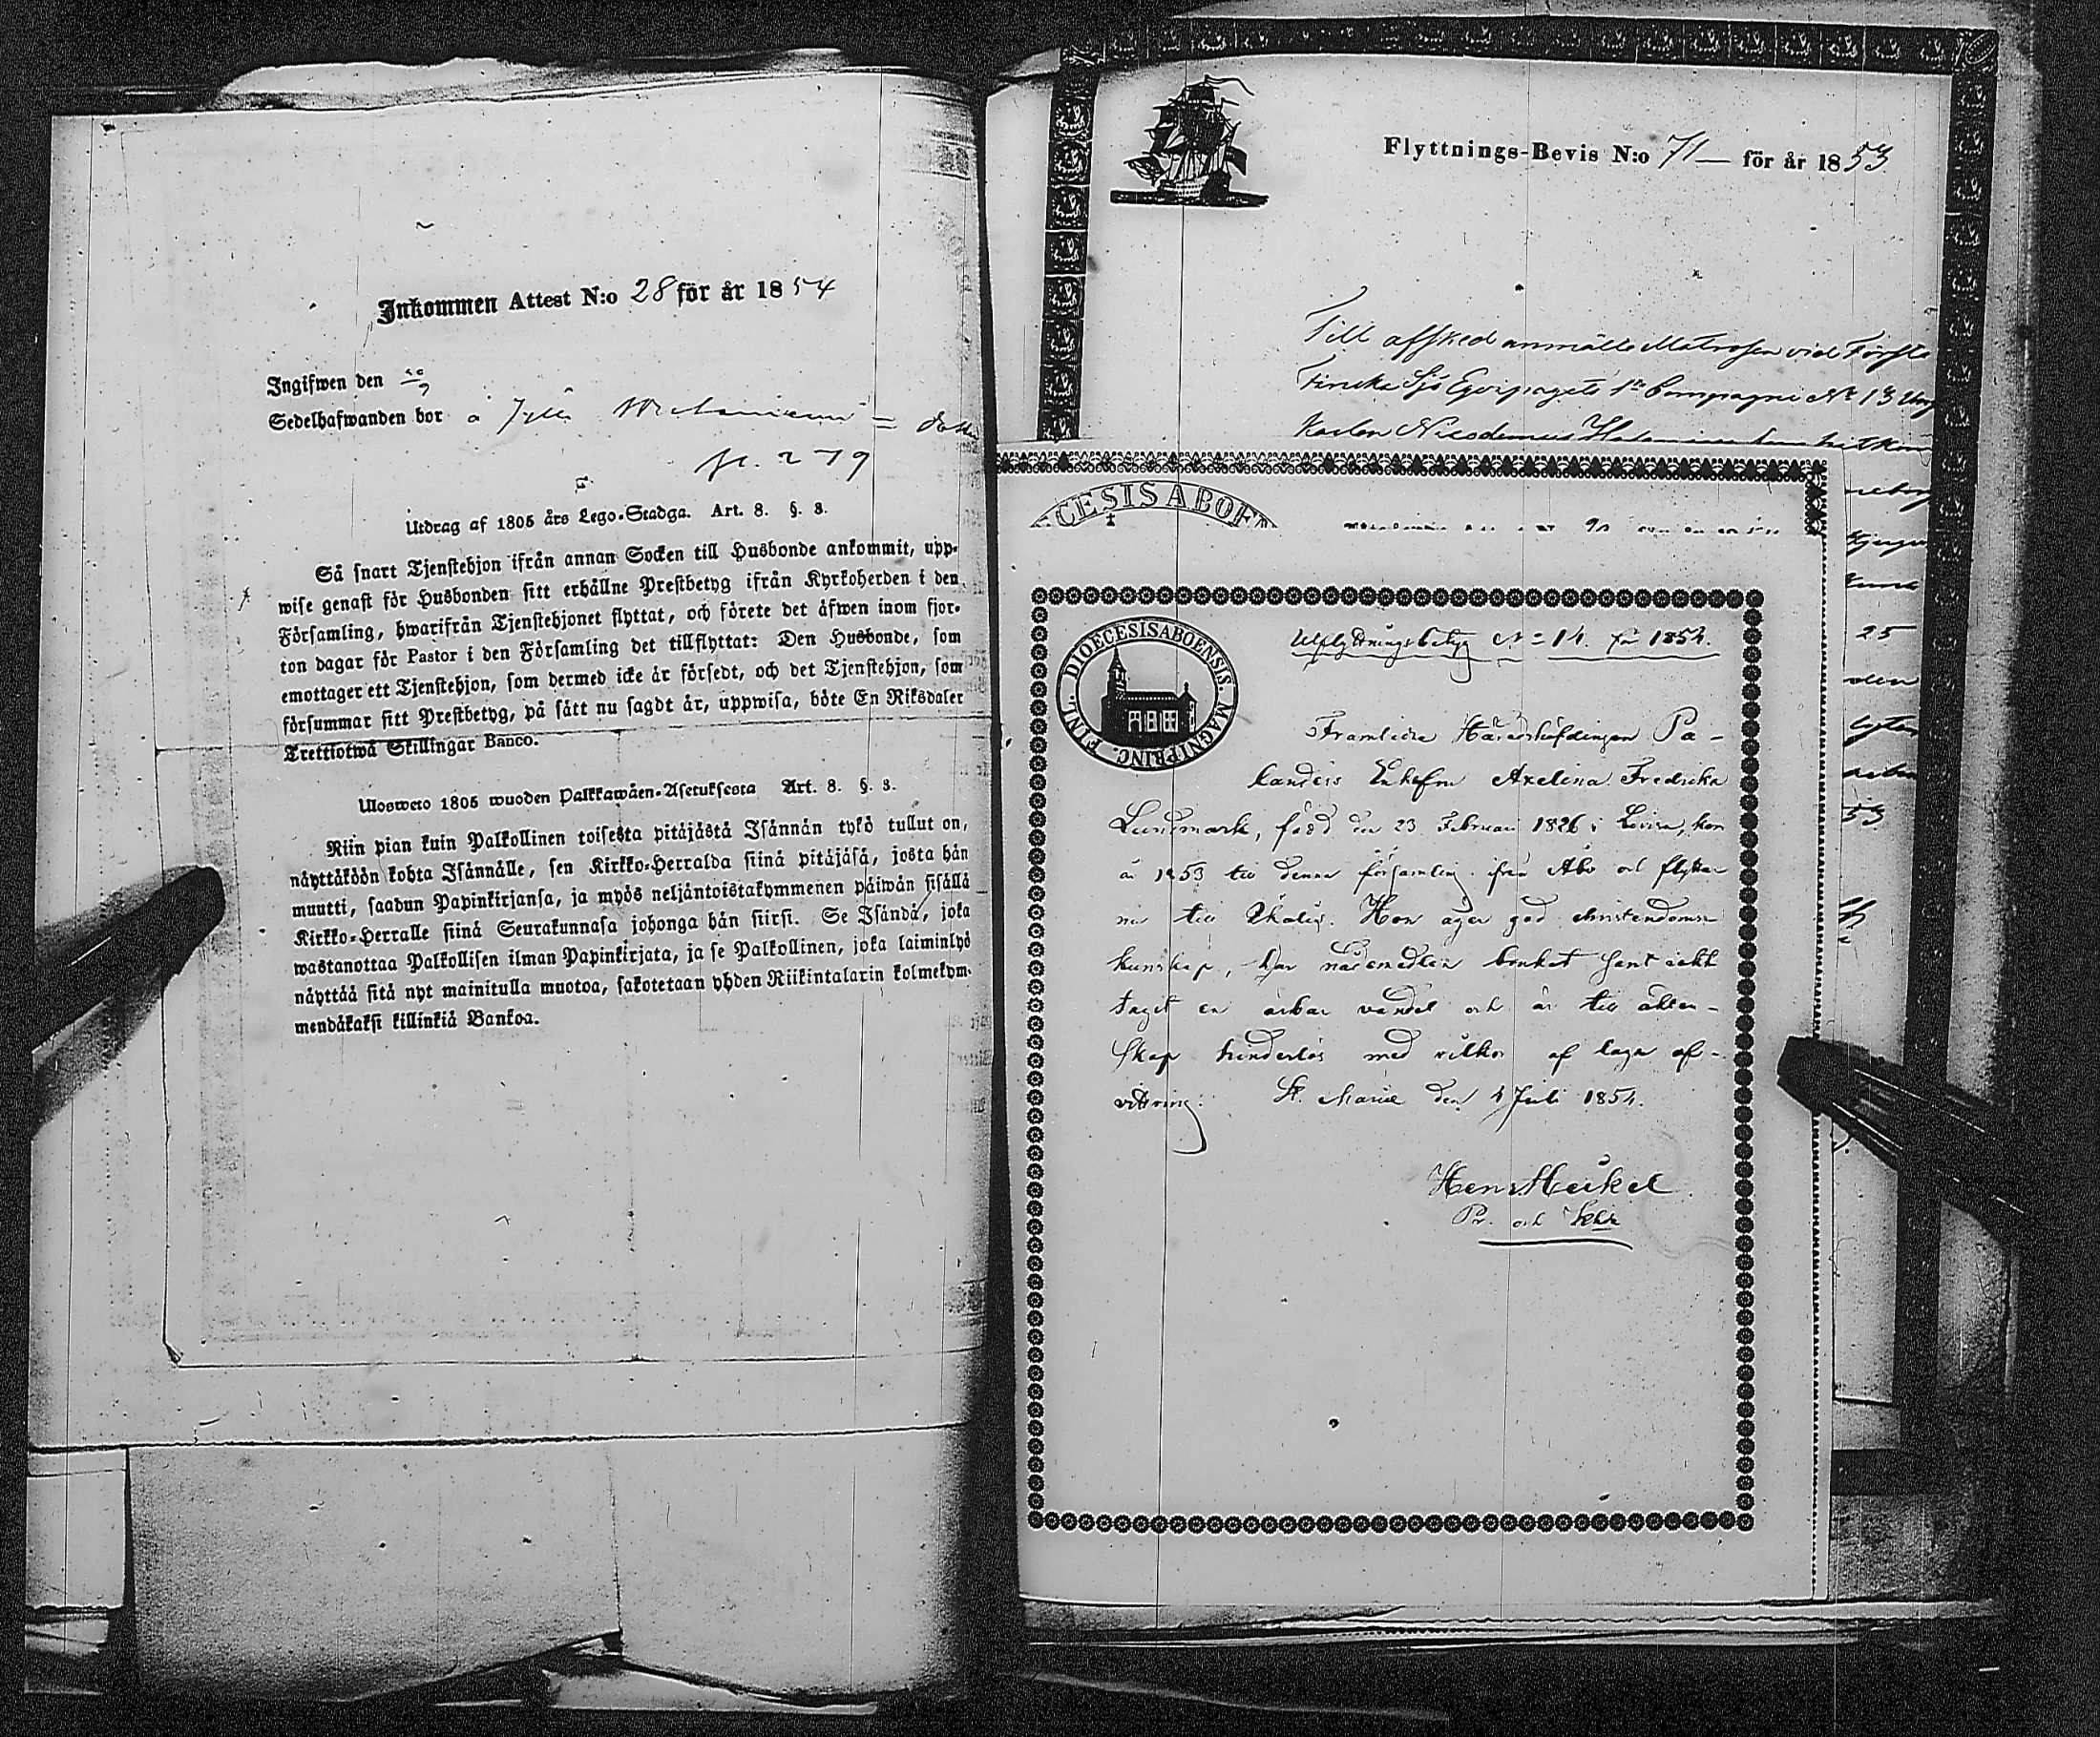 Inkommen Attest N:o 28 för år 1854
Ingifwen den
Sedelhafwanden bor å
p. 279
Utdrag af 1805 års Lego-Stadga. Art. 8. §. 8.
Så snart Tjenstehjon ifrån annan Socken till Husbonde ankommit, upp-
wise genast för Husbonden sitt erhållne Prestbetyg ifrån Kyrkoherden i den
Församling, hwarifrån Tjenstehjonet flyttat, och förete det äfwen inom fjor-
ton dagar för Pastor i den Församling det tillflyttat: Den Husbonde, som
emottager ett Tjenstehjon, som dermed icke är försedt, och det Tjenstehjon, som
försummar sitt Prestbetyg, på sätt nu sagdt är, uppwisa, böte En Riksdaler
Trettiotwå Skillingar Banco.
Ulosweto 1805 wuoden Palkkawäen-Asetuksesta Art. 8. §. 8.
Niin pian kuin Palkollinen toisesta pitäjästä Isännän tykö tullut on,
näyttäköön kohta Isännälle, sen Kirkko-Herralda siinä pitäjäsä, josta hän
muutti, saadun Papinkirjansa, ja myös neljäntoistakymmenen päiwän sisällä
Kirkko-Herralle siinä Seurakunnasa johonga hän siirsi. Se Isändä, joka
wastanottaa Palkollisen ilman Papinkirjata, ja se Palkollinen, joka laiminlyö
näyttää sitä nyt mainitulla muotoa, sakotetaan yhden Riikintalarin kolmekym-
mendäkaksi killinkiä Bankoa.
Flyttnings-Bevis N:o 71 för år 1853
Till afsked anmälte Matrosen vid Första
Finska Sjö Equipagets 1:a Compagni No 13
Karlen Nicodemus
25
53
CESIS ABOEN
DIOECESIS ABOENSIS. MAGNI PRINC. FINL.
Utflyttningsbetyg No 14. för 1854.
Framlidne Häradshöfdingen Pa-
landers Enkefru Axelina Fredrika
Lundmark, född den 23 Februari 1826 i Lovisa, kom
år 1853 till denna församling ifrån Åbo och flyttar
nu till Uskela. Hon äger god christendoms-
kunskap, har nådemedlen brukat samt iakt
taget en ärbar vandel och är till äkten-
skap hinderlös med vilkor af laga af-
vittring. St. Mariæ den 4 Juli 1854.
Henr Heikel
Pr. och Khde